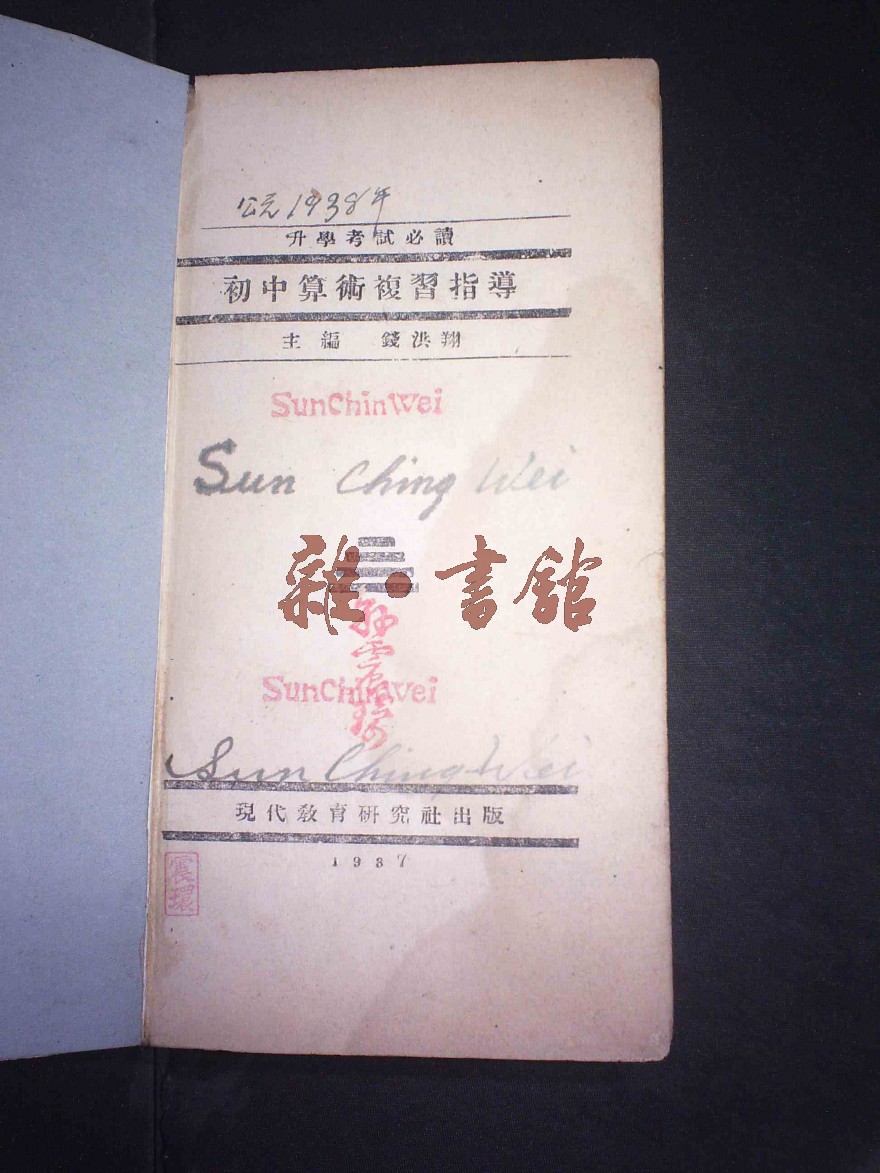 公元1938年
升學考試必讀
初中算術複習指導
主編 錢洪翔
SunChinWei
Sun Ching Wei
雜·書館
孫震環
SunChinWei
Sun Ching-Wei
現代教育研究社出版
1937
震環